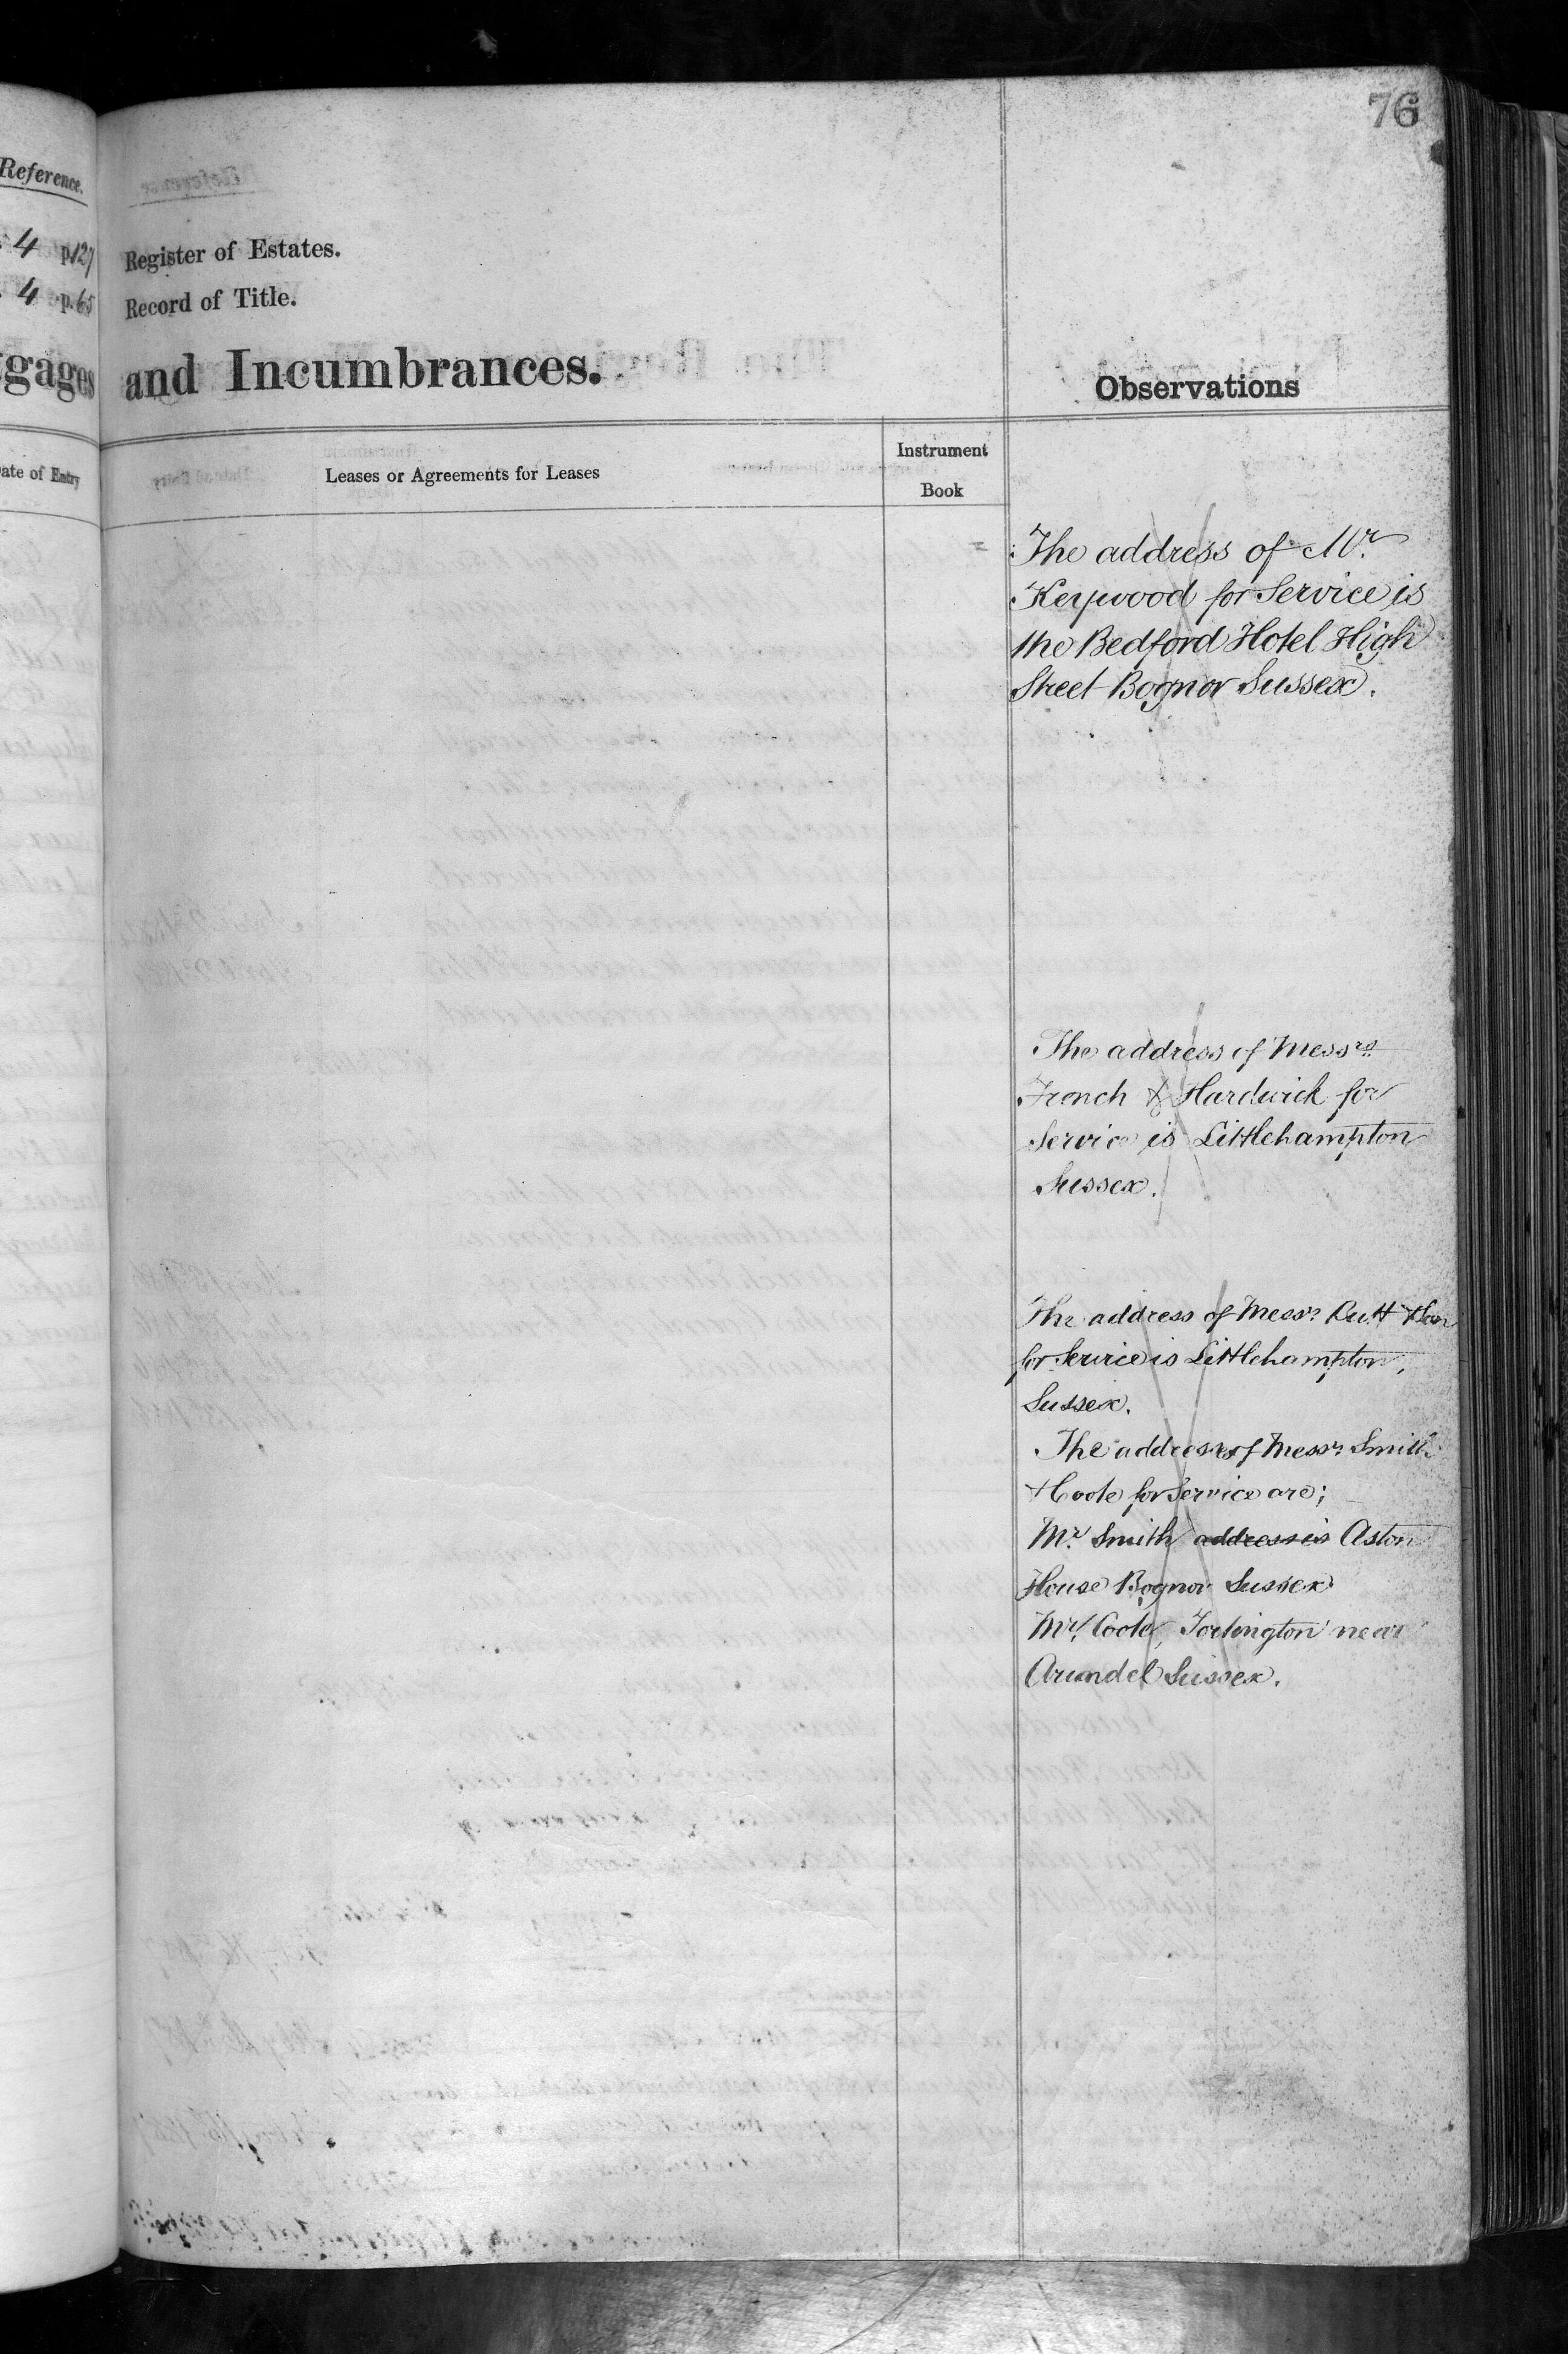 76
Reference.
4 p.127
4 p.65
gages
Date of Entry
Register of Estates.
Record of Title.
and Incumbrances.
Observations
Leases or Agreements for Leases
Instrument
Book
The address of Mr.
Keywood for Service is
the Bedford Hotel High
Street Bognor Sussex.
The address of Messrs.
French & Hardwick for
Service is Littlehampton
Sussex.
The address of Messrs. Butt & Son
for Service is Littlehampton,
Sussex.
The address of Messrs. Smith
& Coote for Service are;
Mr. Smith address is Aston
House Bognor Sussex
Mr. Coote, Tortington near
Arundel Sussex.